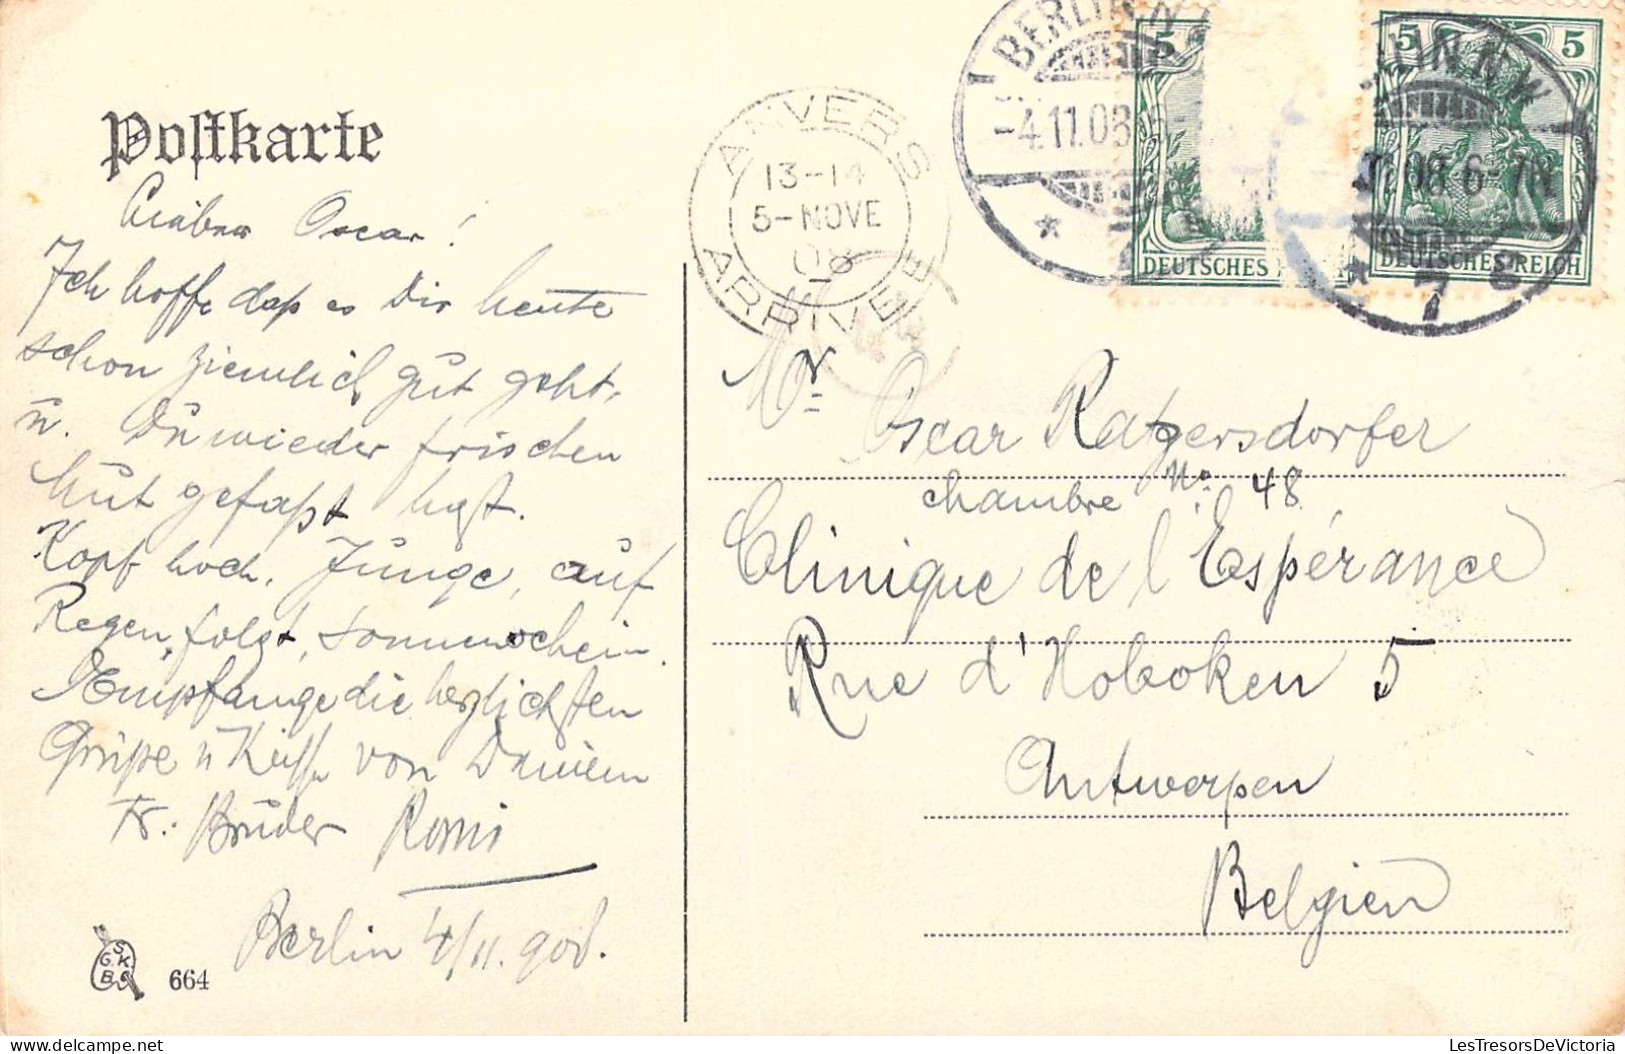 Postkarte
Lieber Oscar!
Ich hoffe daß es Dir heute
schon ziemlich gut geht,
u. Du wieder frischen
Mut gefaßt hast.
Kopf hoch, Junge, auf
Regen, folgt, Sonnenschein.
Empfange die herzlichsten
Grüße u Küsse von Deinem
Tr. Bruder Romi
Berlin 4/11. 908.
S.
G.K.
B.
664
ANVERS
13-14
5-NOVE
08
ARRIVEE
BERLIN N
-4.11.08.6-
*
5
DEUTSCHES
5 5
LIN N.W.
11.08.6-7N
* 7
DEUTSCHES REICH
Mr Oscar Ratzersdorfer
chambre No. 48
Clinique de l'Espérance
Rue d'Hoboken 5
Antwerpen
Belgien
LesTresorsDeVictoria
delcampe.net